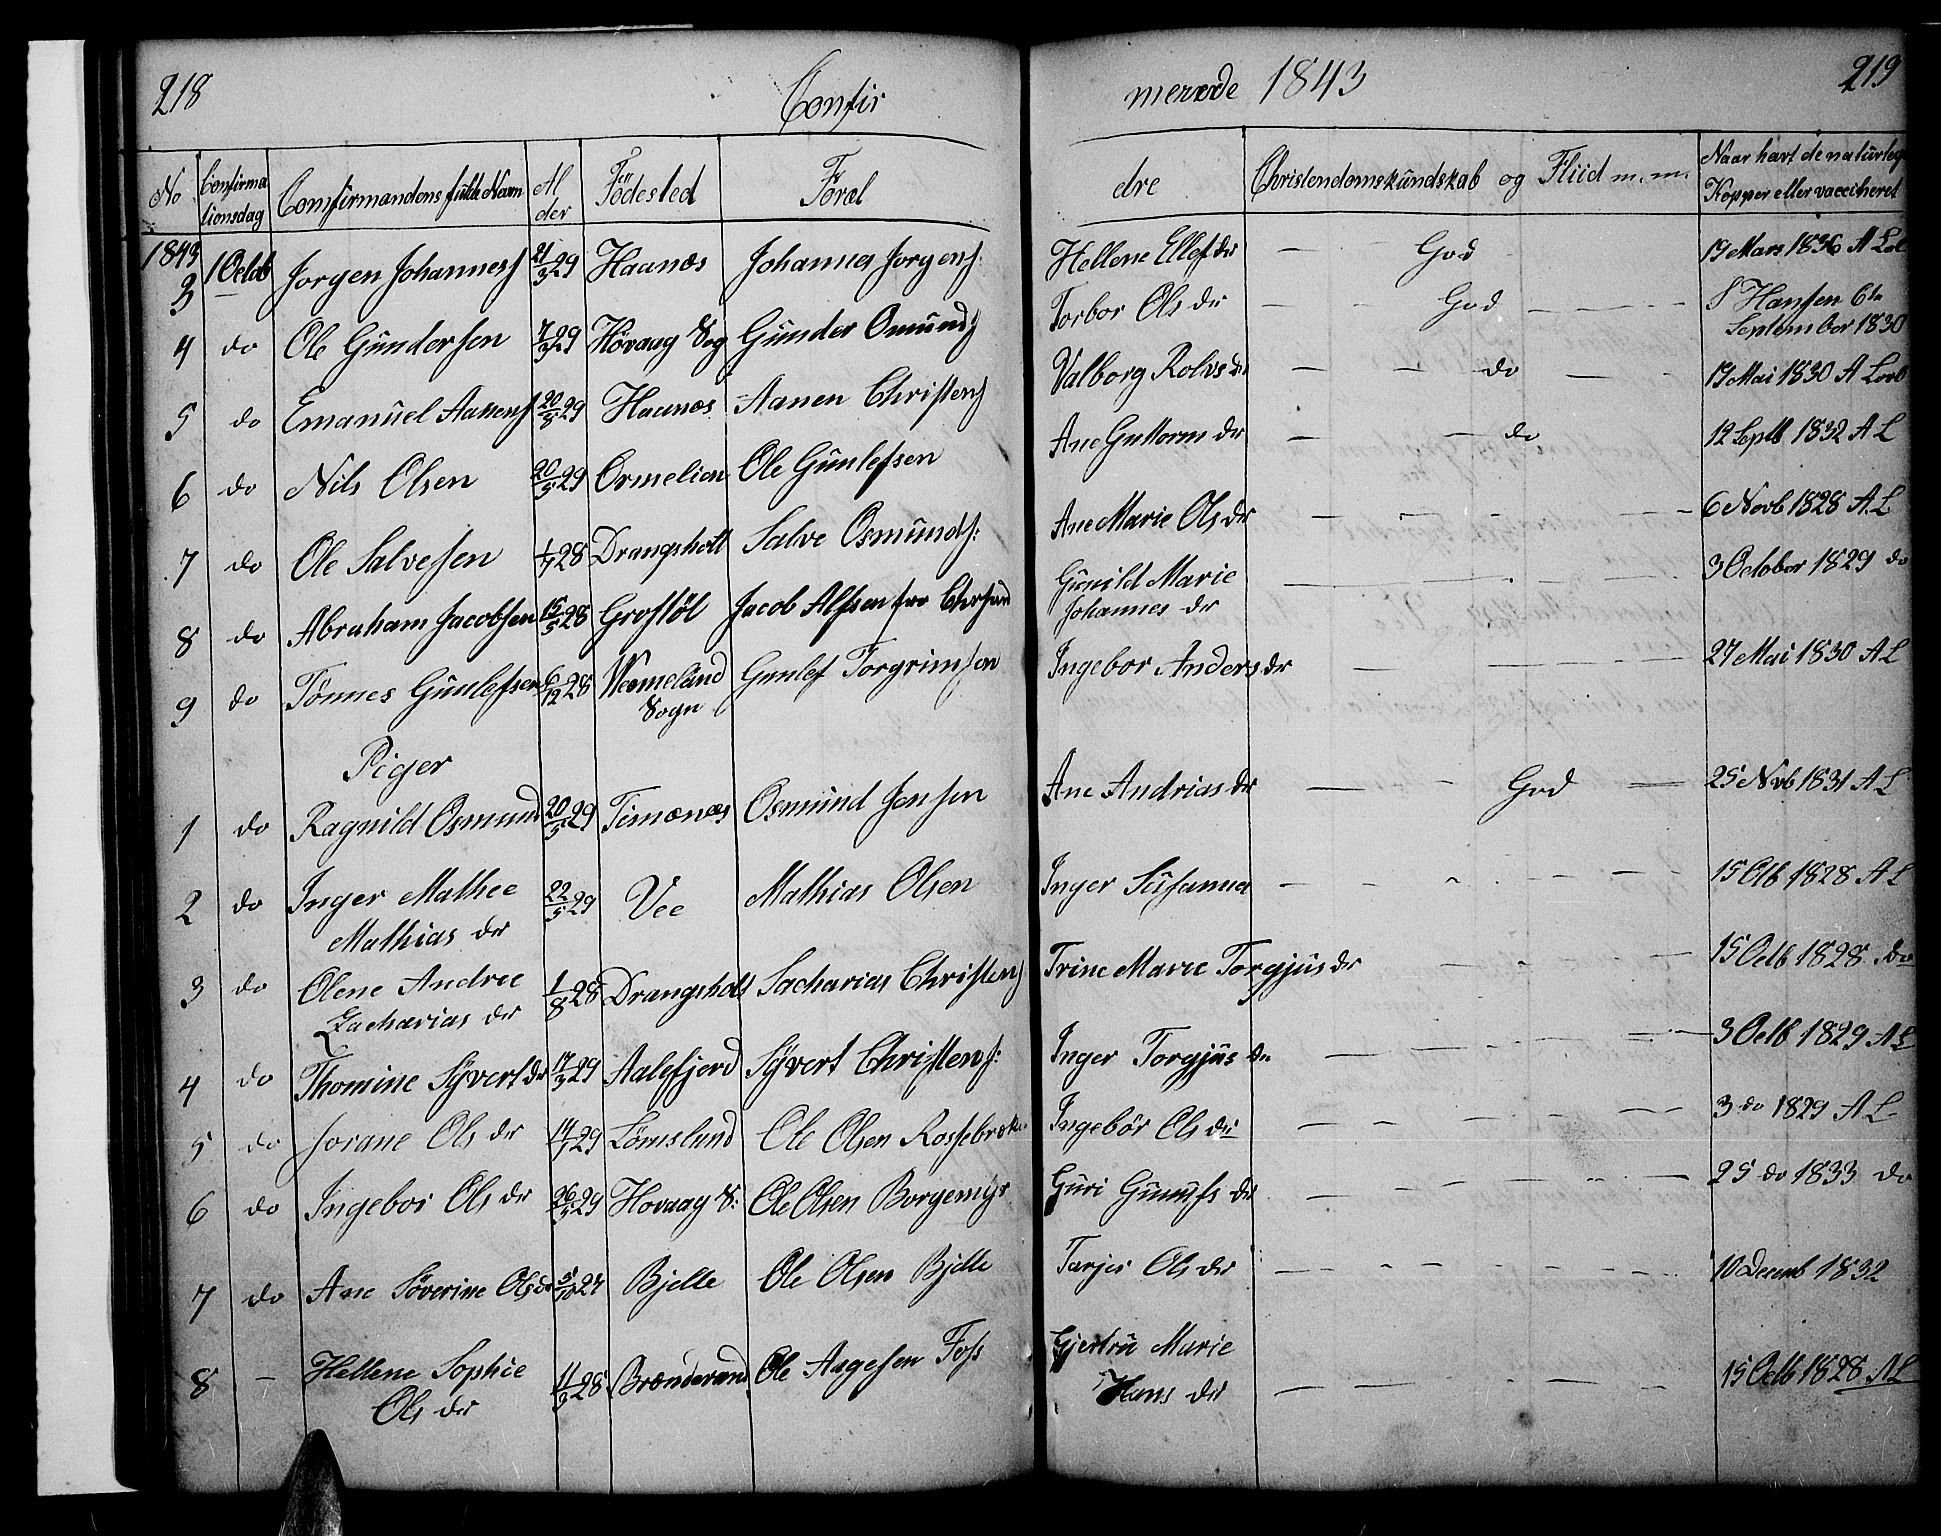 218 Confir merede 1843 219
No Confirma tionsdag Confirmandens fulde Navn Al der Fødested Foræl dre Christendomskundskab og Fliid m. m. Naar havt de naturlige Kopper eller vaccineret
1843
3 1 Octob Jorgen Johannes 21/3 29 Haanæs Johannes Jorgens: Hellene Ellefsdr — God 19 Mars 1836 A
4 do Ole Gundersen 7/3 29 Høvaag Sog Gunder Osmunds Torbor Olsdr — God — S Hansen 6te September 1830
5 do Emanuel Aanens 20/8 29 Haanæs Aanen Christens Valborg Rolvsdr — do — 19 Mai 1830 A
6 do Nils Olsen 20/5 29 Ormelien Ole Gunlefsen Ane Guttormdr — do 12 Septb 1832 A L
7 do Ole Salvesen 1/7 28 Drangsholt Salve Osmunds: Ane Marie Olsdr — 6 Novb 1828 A L
8 do Abraham Jacobsen 15/5 28 Grostøl Jacob Alfsen fra Chrsand Gunild Marie Johannesdr — 3 October 1829 do
9 do Tønnes Gunlefsen 6/12 28 Sogn Gunlef Torgrimsen Ingebor Andersdr — 27 Mai 1830 A L
Piger
1 do Ragnild Osmund 20/5 29 Timænæs Osmund Jensen Ane Andriasdr — God — 25 Nvb 1831 A L
2 do Inger Mathee Mathiasdr 22/5 29 Vee Mathias Olsen Inger Susanna — 15 Otb 1828 A L
3 do Olene Andree Zachariasdr 1/8 28 Drangsholt Sacharias Christens Trine Marie Torgjusdr — 15 Octb 1828 do
4 do Thomine Syvertdr 17/3 29 Aalefjerd Syvert Christens: Inger Torgjusdr — 3 Octb 1829 A L
5 do Jorane Olsdr 14/7 29 Lømslund Ole Olsen Ingebør Olsdr — 3 do 1829 A L
6 do Ingebor Olsdr 26/5 29 Hovaag S: Ole Olsen Borgemyr Guri dr — 25 do 1833 do
7 do Ane Søverine Olsdr 5/10 27 Bjelle Ole Olsen Bjelle Tarjer Olsdr — 10 Decemb 1832
8 — Hellene Sophie Olsdr 11/9 28 Ole Aagesen Foss Gjertru Marie Hansdr — 15 Octb 1828 A L